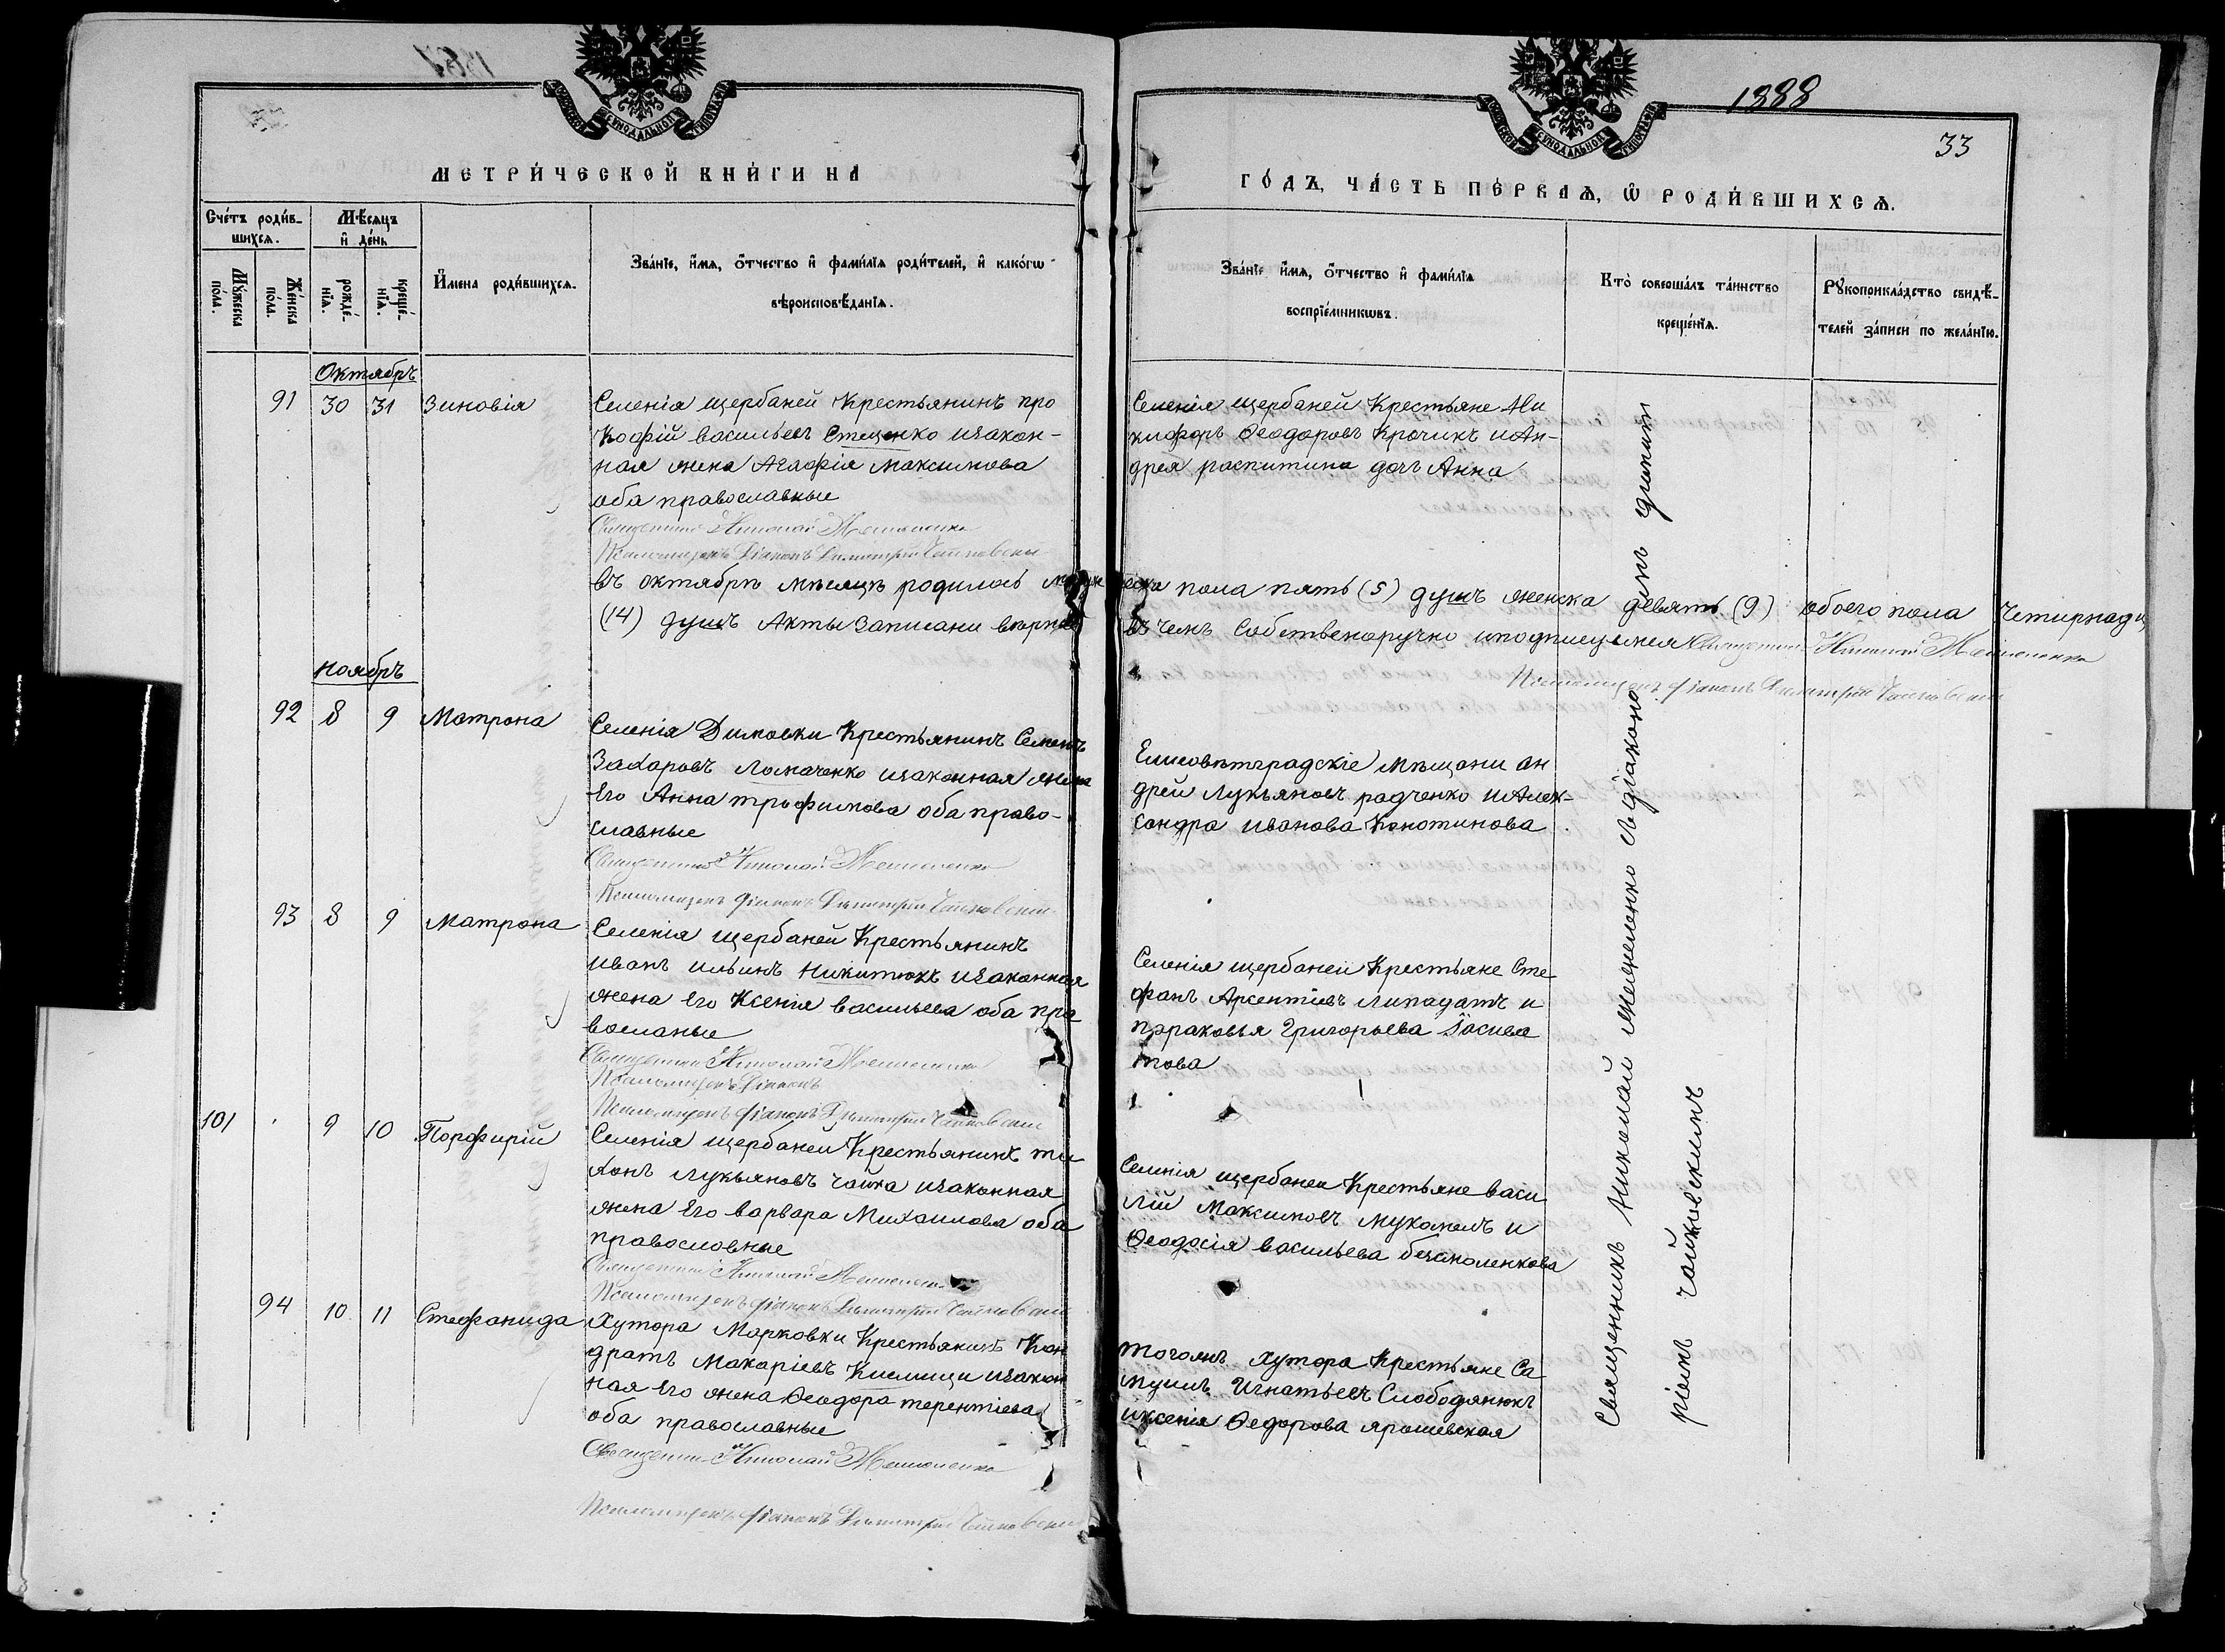 1888
33
МЕТРИ́ЧЕСКОЙ КНИ́ГИ НА
ГО́ДЪ, ЧА́СТЬ ПЕ́РВАѦ, Ѽ РОДИ́ВШИХСѦ.
Сче́тъ роди́в-
шихсѧ.
Мѣ́сѧцъ
и҆ де́нь
Мꙋ́жеска
по́ла.
Же́нска
по́ла.
рожде́-
нїѧ.
креще́-
нїѧ.
И҆мена роди́вшихсѧ.
Зва́нїе, и҆́мѧ, ѻ҆́тчество и҆ фами́лїѧ роди́телей, и҆ како́гѡ
вѣроисповѣ́данїѧ.
Зва́нїе и҆́мѧ, ѻ҆́тчество и҆ фами́лїѧ
воспрїе́мникѡвъ.
Кто̀ соверша́лъ та́инство
креще́нїѧ.
Рꙋкоприкла́дство свидѣ́-
телей за́писи по жела́нїю.
Октябрь
91 30 31 Зиновія
Селенія щербаней Крестьянинъ про
кофій васильевъ Стеценко изакон-
ная жена Агафія максимова
оба православные
Священникъ Николай
Псаломщикъ Діаконъ Димитрій Чайковскій
Селенія щербаней Крестьяне Ни
кифоръ Ѳеодоровъ Крочикъ иАн-
дрея распитина дочь Анна
въ октябрѣ мѣсяцѣ родилось мужеска пола пять (5) душъ женска девять (9) обоего пола четирнадц
(14) душъ Акты записани вѣрно въ чемъ Собственоручно иподписуемся Священникъ Николай
Псаломщикъ Діаконъ Димитрій Чайковскій
ноябрь
92 8 9 Матрона
Селенія Димовки Крестьянинъ Семенъ
Захаровъ Ломаченко изаконная жена
Его Анна трофимова оба право-
славные
Священникъ Николай
Псаломщикъ Діаконъ Димитрій Чайковскій
Елисоветградскіе мѣщани ан
дрей Лукьяновъ радченко иАлек-
сандра иванова Конотинова
93 8 9 Матрона
Селенія щербаней Крестьянинъ
иванъ ильинъ никитюкъ изаконная
жена его Ксенія васильева оба пра
вославные
Священникъ Николай
Псаломщикъ Діаконъ
Псаломщикъ Діаконъ Димитрій Чайковскій
Селенія щербаней Крестьяне Сте
фанъ Арсентіевъ липадатъ и
параковья Григорьева
това
101 9 10 Порфирій
Селенія щербаней Крестьянинъ ти
хонъ лукьяновъ чайка изаконная
жена Его варвара Михаилова оба
православные
Священникъ Николай
Псаломщикъ Діаконъ Димитрій Чайковскій
Селенія щербаней Крестьяне васи
лій Максимовъ мукомелъ и
Ѳеодосія васильева безноленкова
94 10 11 Стефанида
Хутора Марковки Крестьянинъ Кон
дратъ Макаріевъ Кислица изакон
ная Его жена Ѳеодора терентіева
оба православные
Священникъ Николай
Псаломщикъ Діаконъ Димитрій Чайковскій
тогожъ хутора Крестьяне Са
муилъ Игнатьевъ Слободянюкъ
иксенія Ѳедорова ярошевская
Священникъ Николай съдіакономъ
чайковскимъ